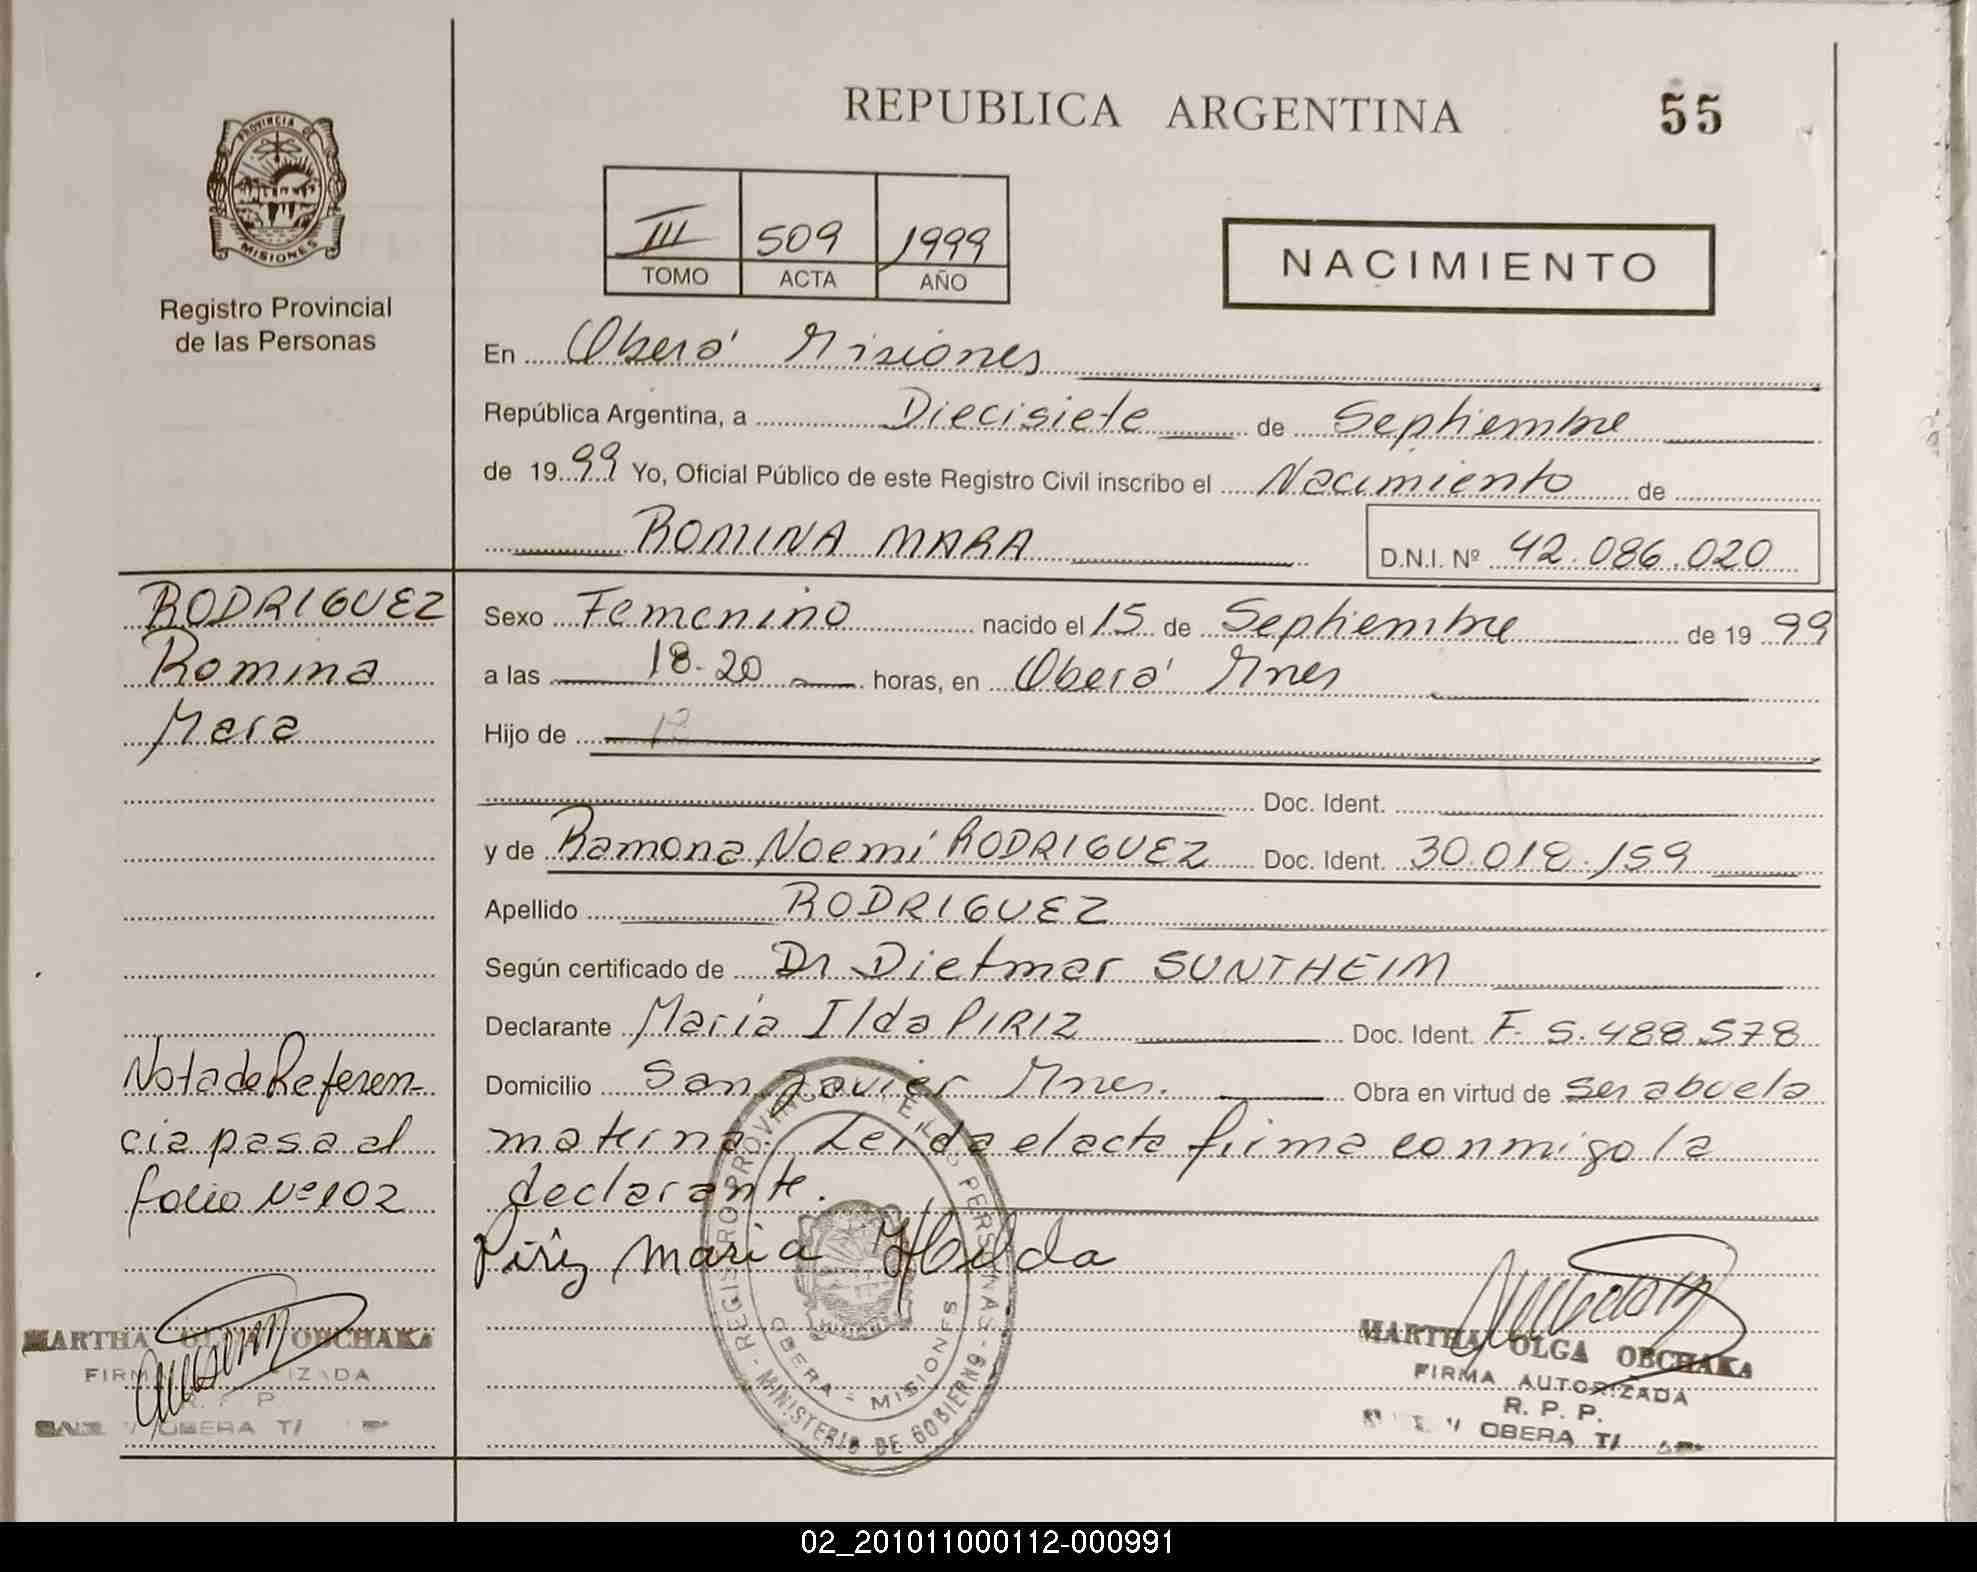 REPUBLICA ARGENTINA
55
PROVINCIA DE
MISIONES
Registro Provincial
de las Personas
III 509 1999
TOMO ACTA AÑO
NACIMIENTO
En Oberá Misiones
República Argentina, a Diecisiete de Septiembre
de 1999 Yo, Oficial Público de este Registro Civil inscribo el Nacimiento de
ROMINA MARA D.N.I. Nº 42.086.020
RODRIGUEZ
Romina
Mara
Sexo Femenino nacido el 15 de Septiembre de 1999
a las 18.20 horas, en Oberá Mnes
Hijo de
Doc. Ident.
y de Ramona Noemí RODRIGUEZ Doc. Ident. 30.018.159
Apellido RODRIGUEZ
Según certificado de Dr Dietmar SUNTHEIM
Declarante María Ilda PIRIZ Doc. Ident. F. 5.488.578
Domicilio San Javier Mnes. Obra en virtud de ser abuela
materna. Leída el acta firma conmigo la
declarante.
Piriz María Hilda
Nota de Referen-
cia pasa al
folio Nº 102
REGISTRO PROVINCIAL DE LAS PERSONAS
OBERA - MISIONES
MINISTERIO DE GOBIERNO
MARTHA OLGA OBCHAKA
FIRMA AUTORIZADA
R. P. P.
OBERA
MARTHA OLGA OBCHAKA
FIRMA AUTORIZADA
R. P. P.
OBERA
02_201011000112-000991